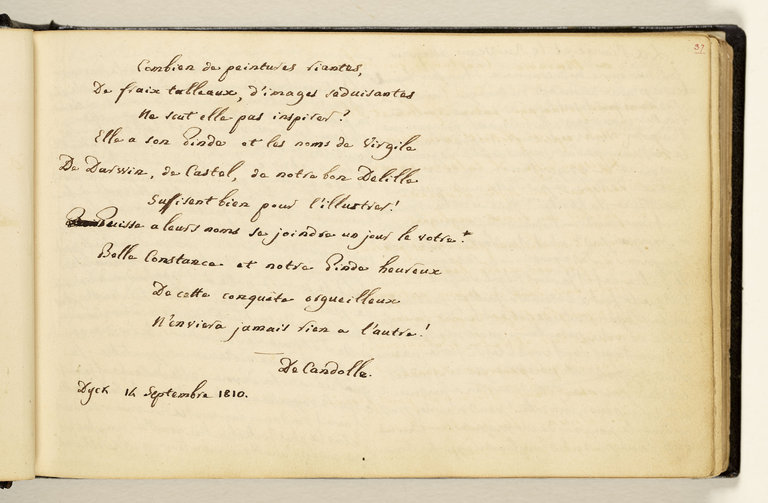 37
Combien de peintures riantes,
De fraix tableaux, d'images seduisantes
Ne scut elle pas inspirer?
Elle a son Pinde et les noms de Virgile
De Darwin, de Castel, de notre bon Delille
Suffisent bien pour l'illustrer!
Puisse a leurs noms se joindre un jour le votre!
Belle Constance et notre Pinde heureux
De cette conquête orgueilleux
N'enviera jamais rien a l'autre!
DeCandolle.
Dyck 14 Septembre 1810.